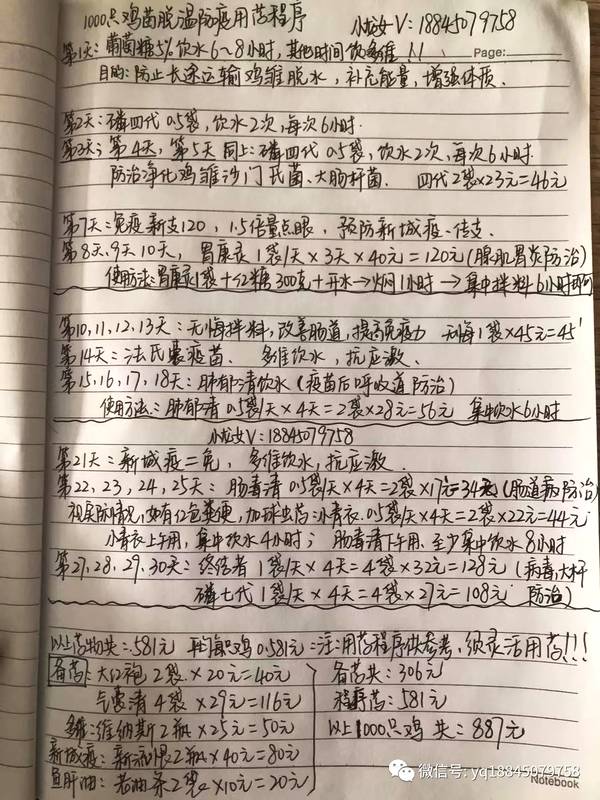 1000只鸡苗脱温防疫用药程序
小龙女V:18845079758
第1天:葡萄糖5%饮水6~8小时,其他时间饮多维!!
Page:
目的:防止长途运输鸡雏脱水,补充能量,增强体质.
第2天:磺四代0.5袋,饮水2次,每次6小时.
第3天;第4天,第5天同上:磺四代0.5袋,饮水2次,每次6小时.
防治净化鸡雏沙门氏菌、大肠杆菌. 四代2袋×23元=46元
第7天:免疫新支120,1.5倍量点眼,预防新城疫、传支.
第8天、9天10天,胃康灵1袋/天×3天×40元=120元(腺肌胃炎防治)
使用方法:胃康灵1袋+红糖300克+开水→焖1小时→集中拌料6小时
第10,11,12,13天:无悔拌料,改善肠道,提高免疫力 无悔1袋×45元=45
第14天:法氏囊疫苗. 多维饮水,抗应激.
第15,16,17,18天:肺郁清饮水(疫苗后呼吸道防治)
使用方法:肺郁清0.5袋/天×4天=2袋×28元=56元 集中饮水6小时
小龙女V:18845079758
第21天:新城疫二免,多维饮水,抗应激.
第22,23,24,25天:肠毒清0.5袋/天×4天=2袋×17元=34元(肠道病防治)
视实际情况,如有血色粪便,加球虫药:小青衣.0.5袋/天×4天=2袋×22元=44元
小青衣上午用,集中饮水4小时;肠毒清下午用、至少集中饮水8小时
第27,28,29,30天:终结者1袋/天×4天=4袋×32元=128元(病毒,大杆
磺七代1袋/天×4天=4袋×27元=108元 防治)
以上药物共:581元 平均每只鸡0.581元 注:用药程序供参考,须灵活用药!!!
备药:大红袍2袋×20元=40元
气囊清4袋×29元=116元
多维:维纳斯2瓶×25元=50元
新城疫:新流 2瓶×40元=80元
鱼肝油:老油条2袋×10元=20元
备药共:306元
程序药:581元
以上1000只鸡共:887元
微信号:yq18845079758
Notebook